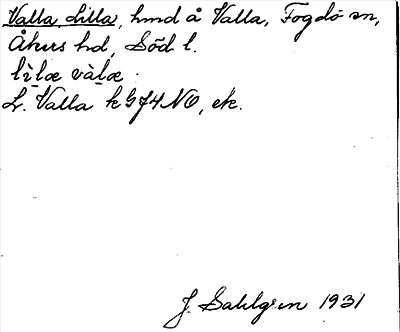 Valla, Lilla, hmd å Valla, Fogdö sn,
Åkers hd, Söd l.
lìlæ vàlæ
L. Valla k G J4 NO, ek.
J. Sahlgren 1931